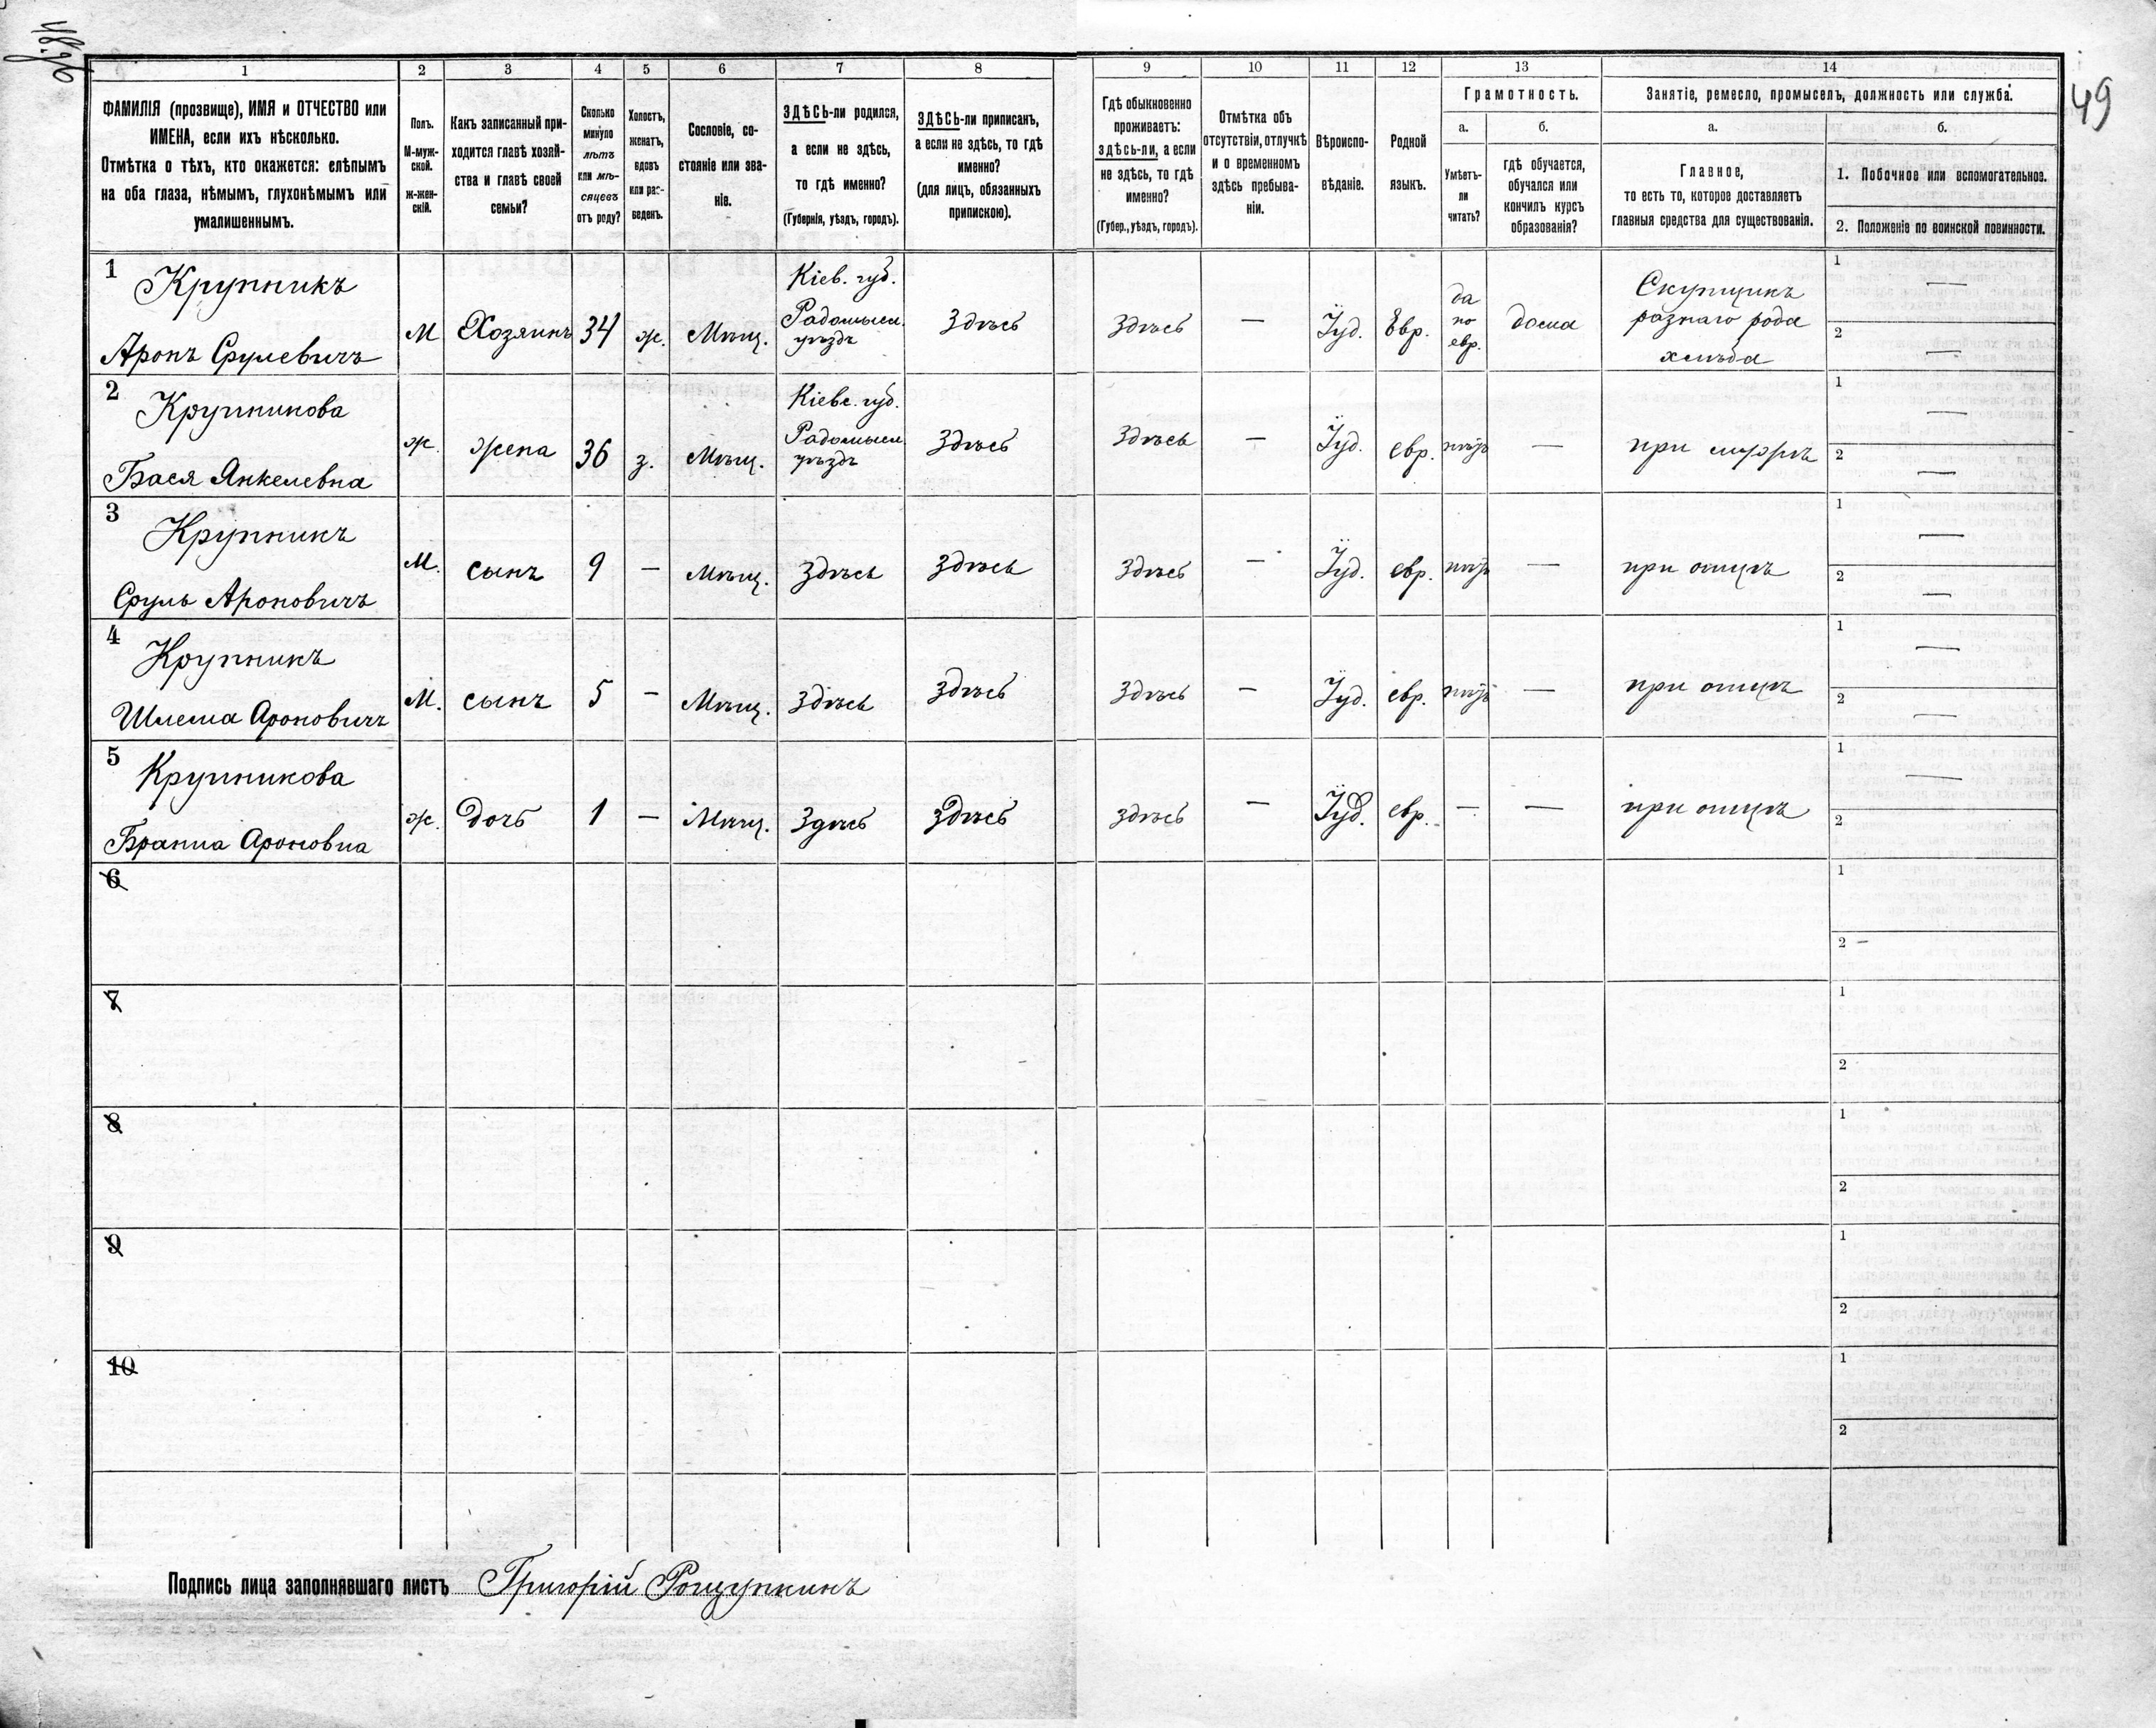 48 об
49
1
2
3
4
5
6
7
8
9
10
11
12
13
14
ФАМИЛІЯ (прозвище), ИМЯ и ОТЧЕСТВО или
ИМЕНА, если ихъ нѣсколько.
Отмѣтка о тѣхъ, кто окажется: слѣпымъ
на оба глаза, нѣмымъ, глухонѣмымъ или
умалишеннымъ.
Полъ.
М-муж-
ской.
ж-жен-
скій.
Какъ записанный при-
ходится главѣ хозяй-
ства и главѣ своей
семьи?
Сколько
минуло
лѣтъ
или мѣ-
сяцевъ
отъ роду?
Холостъ,
женатъ,
вдовъ
или раз-
веденъ.
Сословіе, со-
стояніе или зва-
ніе.
ЗДѢСЬ-ли родился,
а если не здѣсь,
то гдѣ именно?
(Губернія, уѣздъ, городъ).
ЗДѢСЬ-ли приписанъ,
а если не здѣсь, то гдѣ
именно?
(для лицъ, обязанныхъ
припискою).
Гдѣ обыкновенно
проживаетъ:
здѣсь-ли, а если
не здѣсь, то гдѣ
именно?
(Губер., уѣздъ, городъ).
Отмѣтка объ
отсутствіи, отлучкѣ
и о временномъ
здѣсь пребыва-
ніи.
Вѣроиспо-
вѣданіе.
Родной
языкъ.
Грамотность.
а.
Умѣетъ-
ли
читать?
б.
гдѣ обучается,
обучался или
кончилъ курсъ
образованія?
Занятіе, ремесло, промыселъ, должность или служба.
а.
Главное,
то есть то, которое доставляетъ
главныя средства для существованія.
б.
1. Побочное или вспомогательное.
2. Положеніе по воинской повинности.
1
Крупникъ
Аронъ Срулевичъ
М
Хозяинъ
34
ж.
Мѣщ.
Кіев. губ.
Радомысл.
уѣздъ
Здѣсь
Здѣсь
—
Іуд.
Евр.
да
по
евр.
дома
Скупщикъ
разнаго рода
хлѣба
1 —
2 —
2
Крупникова
Бася Янкелевна
ж.
жена
36
з.
Мѣщ.
Кіевс. губ.
Радомысл.
уѣздъ
Здѣсь
Здѣсь
—
Іуд.
евр.
нѣтъ
—
при мужѣ
1 —
2 —
3
Крупникъ
Сруль Ароновичъ
М.
сынъ
9
—
Мѣщ.
Здѣсь
Здѣсь
Здѣсь
—
Іуд.
евр.
нѣтъ
—
при отцѣ
1 —
2 —
4
Крупникъ
Шлема Ароновичъ
М.
сынъ
5
—
Мѣщ.
Здѣсь
Здѣсь
Здѣсь
—
Іуд.
евр.
нѣтъ
—
при отцѣ
1 —
2 —
5
Крупникова
Бранна Ароновна
ж.
дочь
1
—
Мѣщ.
Здѣсь
Здѣсь
Здѣсь
—
Іуд.
евр.
—
—
при отцѣ
1 —
2
6
1
2 —
7
1
2
8
1
2
9
1
2
10
1
2
Подпись лица заполнявшаго листъ Григорій Рощупкинъ